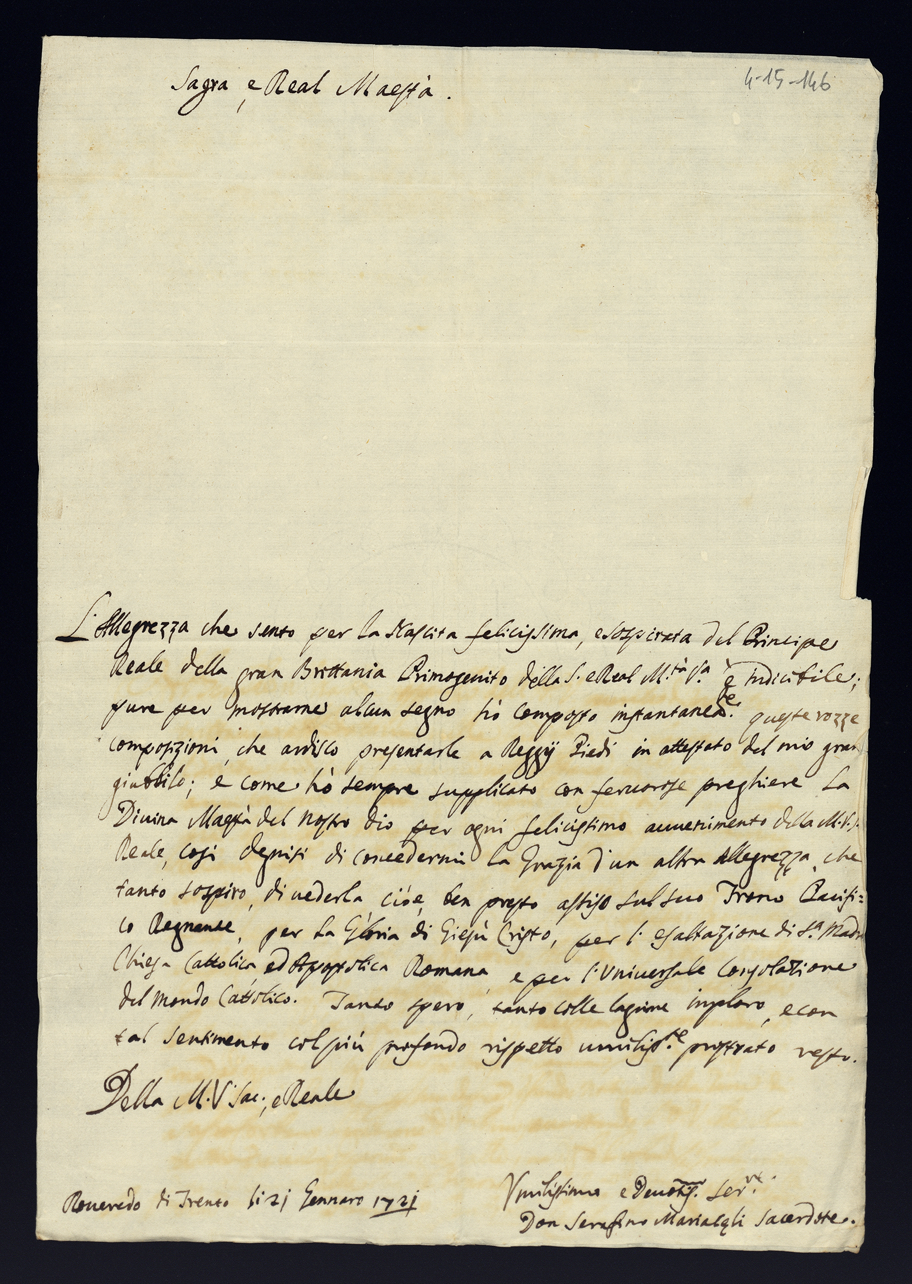 Sagra, e Real Maestà.
4-15-146
L'Allegrezza che sento per la Nascita felicissima, e sospirata del Principe
Reale della gran Brittania Primogenito della S. e Real M.tà V.a è indicibile;
pure per mostrarne alcun segno hò composto instantanea.te queste rozze
composizioni, che ardisco presentarle a Reggÿ Piedi in attestato del mio gran
giubbilo; e come hò sempre supplicato con feruorose preghiere la
Diuina Maestà del Nostro Dio per ogni felicissimo auuenimento della M. V. S.
Reale, così degnisi di concedermi la Grazia d'un altra Allegrezza, che
tanto sospiro, di uederla cioè, ben presto assiso sul suo Trono Pacifi=
co Regnante, per la Gloria di Giesù Cristo, per l'esaltazione di S.a Madre
Chiesa Cattolica ed Appostolica Romana e per l'Vniuersale Consolazione
del mondo Cattolico. Tanto spero, tanto colle lagrime inploro, e con
tal sentimento col più profondo rispetto umiliss.te prostrato resto.
Della M. V. Sac., e Reale
Roueredo di Trento li 21 Gennaro 1721
Vmilissimo e Deuotis. ser.
Don Serafino Sacerdote.